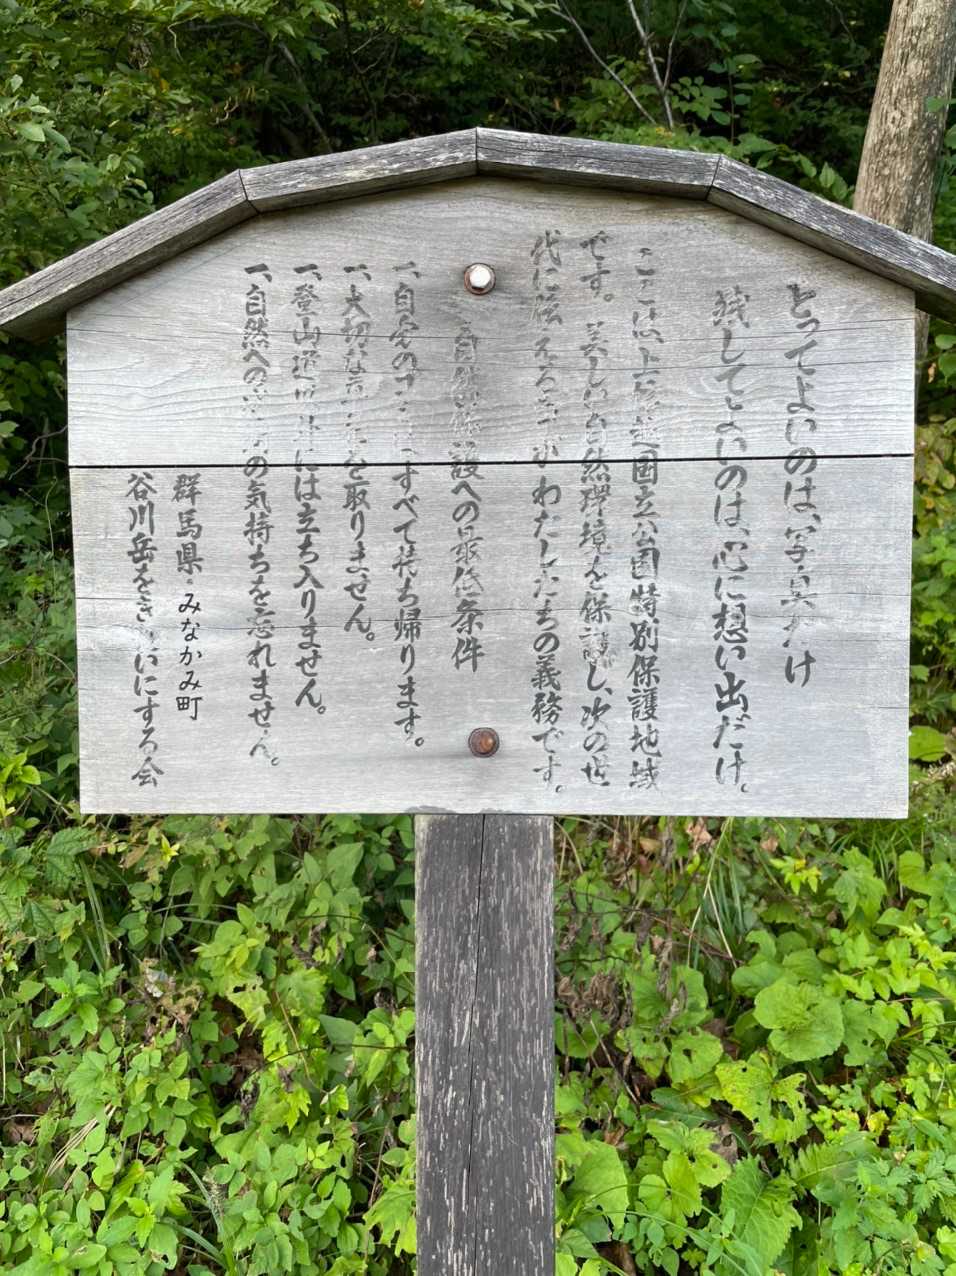 とってよいのは、写真だけ
残してよいのは、心に想い出だけ。
ここは上信越国立公園特別保護地域
です。美しい自然環境を保護し、次の世
代に伝えるのがわたしたちの義務です。
自然保護への最低条件
一、自分のゴミはすべて持ち帰ります。
一、大切な高山植物を取りません。
一、登山道以外には立ち入りません。
一、自然への感謝の気持ちを忘れません。
群馬県・みなかみ町
谷川岳をきれいにする会